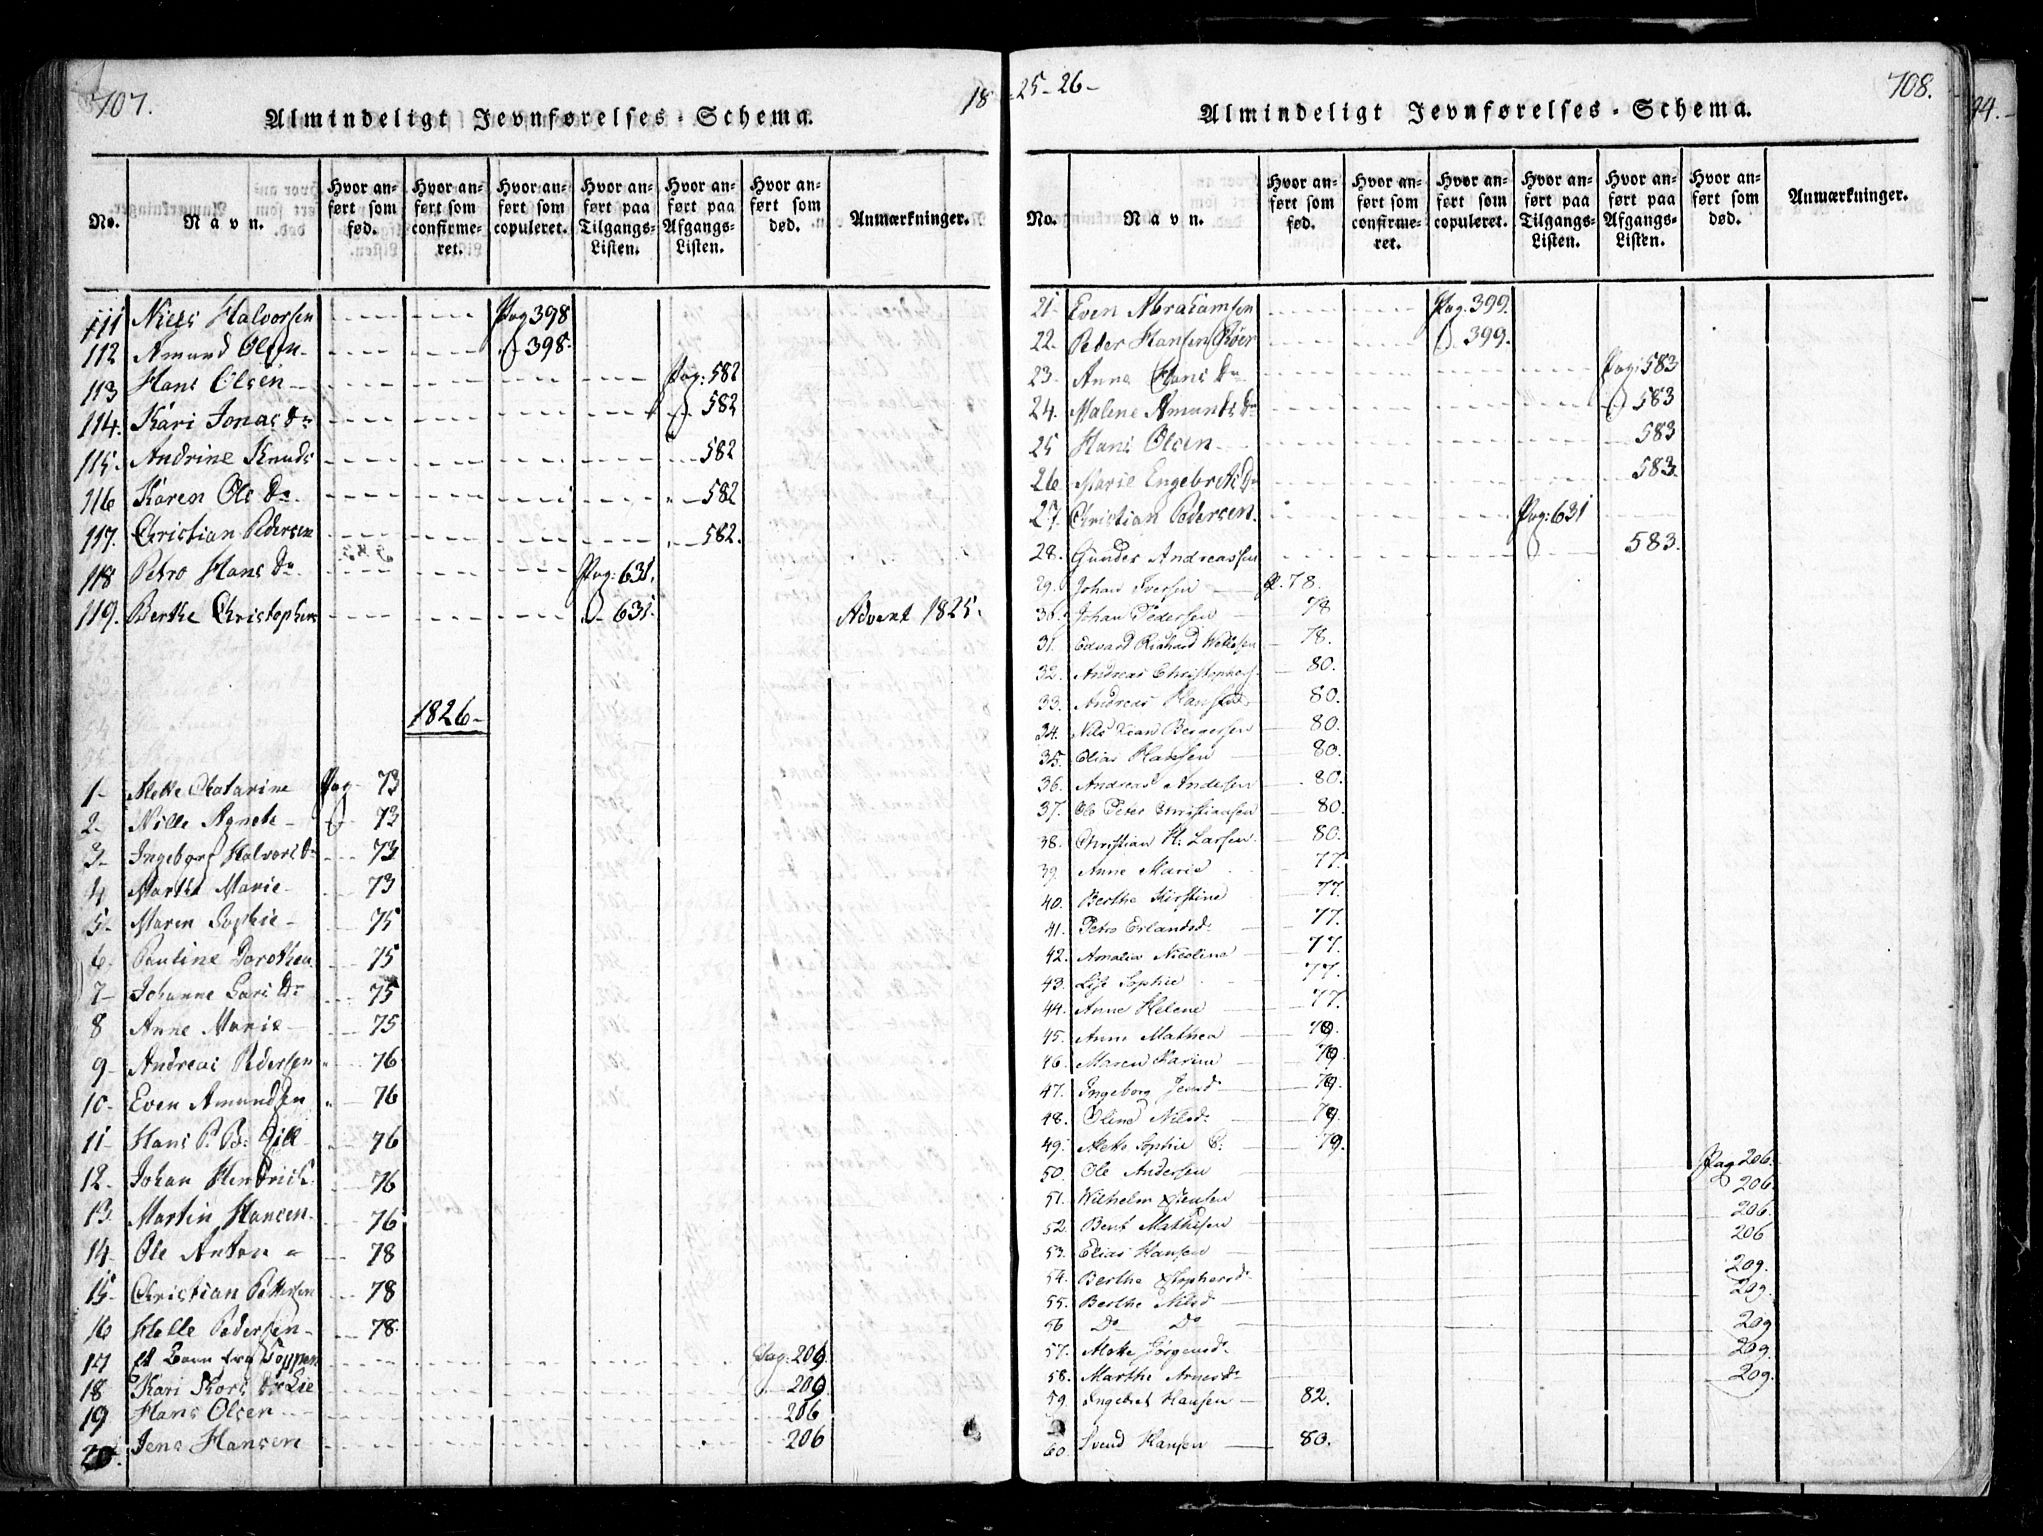 707.
Almindeligt Jevnførelses-Schema.
18
No.
Navn.
Hvor anført som fød.
Hvor anført som confirmeret.
Hvor anført som copuleret.
Hvor anført paa Tilgangs-Listen.
Hvor anført paa Afgangs-Listen.
Hvor anført som død.
Anmærkninger.
111 Niels Halvorsen Pag 398
112 Amund Olsen 398
113 Hans Olsen Pag: 582
114. Kari Jonas Dr 582
115. Andrine Knuds 582
116 Karen Ols Dr. 582
117. Christian Pedersen 582.
118 Petro Hans Dr Pag: 631.
119. Berthe Christophers 631. Advent 1825.
1826-
1- Mette Catarine Pag 73
2- Nille Agnete 73
3- Ingeborg Halvors Dr 73
4 Marthe Marie 73
5- Maren Sophie 75
6- Pauline Dorothea 75
7- Johanne Lars Dr 75
8 Anne Marie 75
9- Andreas Pedersen 76
10- Even Amundsen 76
11- Hans P. B: Gill 76
12- Johan Hendrich 76
13. Martin Hansen 76
14- Ole Anton 78
15- Christian Pettersen 78
16 Helle Pedersen 78.
17 et Barn fra Toppen Pag: 209.
18 Kari Lars Dr Lie 209
19 Hans Olsen 206
20. Jens Hansen 206
25-26-
708.
Almindeligt Jevnførelses-Schema.
No.
Navn.
Hvor anført som fød.
Hvor anført som confirmeret.
Hvor anført som copuleret.
Hvor anført paa Tilgangs-Listen.
Hvor anført paa Afgangs-Listen.
Hvor anført som død.
Anmærkninger.
21- Even Abrahamsen Pag. 399.
22. Peder Hansen Röer 399.
23- Anne Hans Dr Pag: 583
24. Malene Amunds Dr 583
25 Hans Olsen 583
26 Marie Engebrets Dr 583.
27. Christian Pedersen. Pag: 631
28. Gunder Andreassen 583.
29. Johan Iversen P. 78.
30. Johan Pedersen 78
31. Edvard Richard 78.
32. Andreas Christophers. 80.
33. Andreas Hansen 80.
34. Nils Bernersen 80.
35. Elias Hansen 80.
36. Andreas Andersen 80.
37. Ole Peter Christiansen 80.
38. Christian H. Larsen. 80.
39. Anne Marie 77.
40. Berthe Kirstine 77.
41. Petro Erlandsd. 77.
42. Amalia Nicoline 77.
43. Lise Sophie 77.
44. Anne Helene 77.
45. Anne Mathea 79.
46. Maren Karine 79.
47. Ingeborg Jensdr 79.
48. Oline Nilsdr 79.
49. Mette Sophie C: 79.
50. Ole Andersen Pag 206.
51. Wilhelm Jensen 206
52. Bent Mathisen 206.
53. Elias Hansen 206
54. Berthe Xstophersdr 209.
55. Berthe Nilsd 209.
56 Do Do 209
57. Mette Jörgensdr 209.
58. Marthe Arnesdr 209.
59. Engebret Hansen 82.
60. Svend Hansen 80.
94.